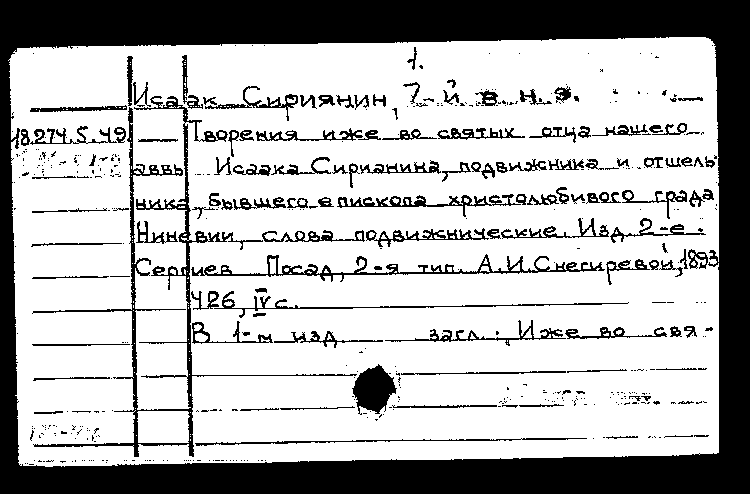 1.
Исаак Сириянин, 7-й в. н. э.
18.274.5.49 — Творения иже во святых отца нашего
аввы Исаака Сирианина, подвижника и отшель
ника, бывшего епископа христолюбивого града
Ниневии, слова подвижнические. Изд. 2-е.
Сергиев Посад, 2-я тип. А.И. Снегиревой, 1893
426, IV с.
В 1-м изд загл.: Иже во свя-